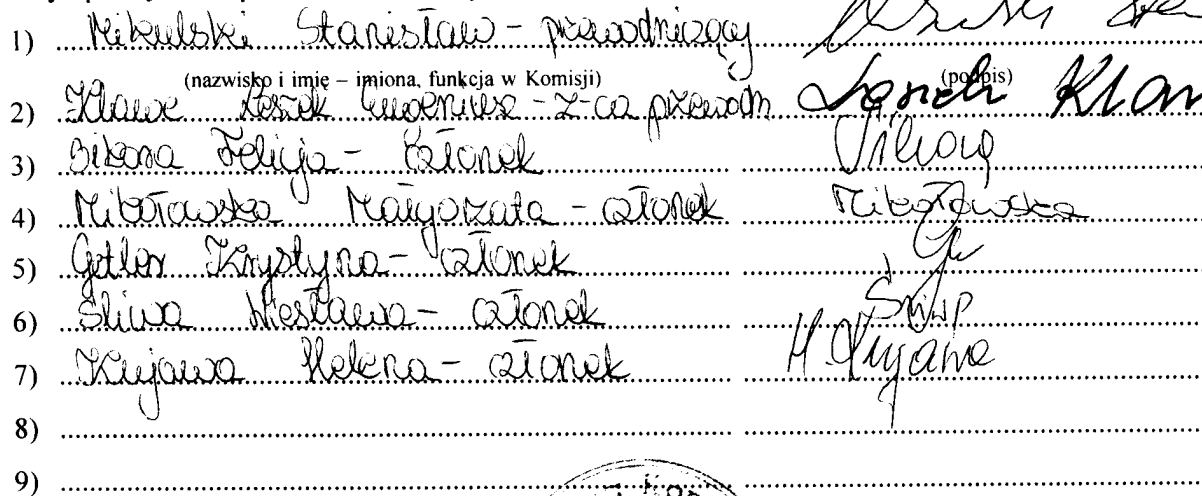 1) Mikulski Stanisław - przewodniczący
(nazwisko i imię – imiona, funkcja w Komisji) (podpis)
2) Klawe Leszek Eugeniusz - z-ca przewodn
3) Sikora Felicja - członek Sikora
4) Mikołowska Małgorzata - członek Mikołowska
5) Getler Krystyna - członek
6) Śliwa Wiesława - członek
7) Kujawa Helena - członek H. Kujawa
8)
9)